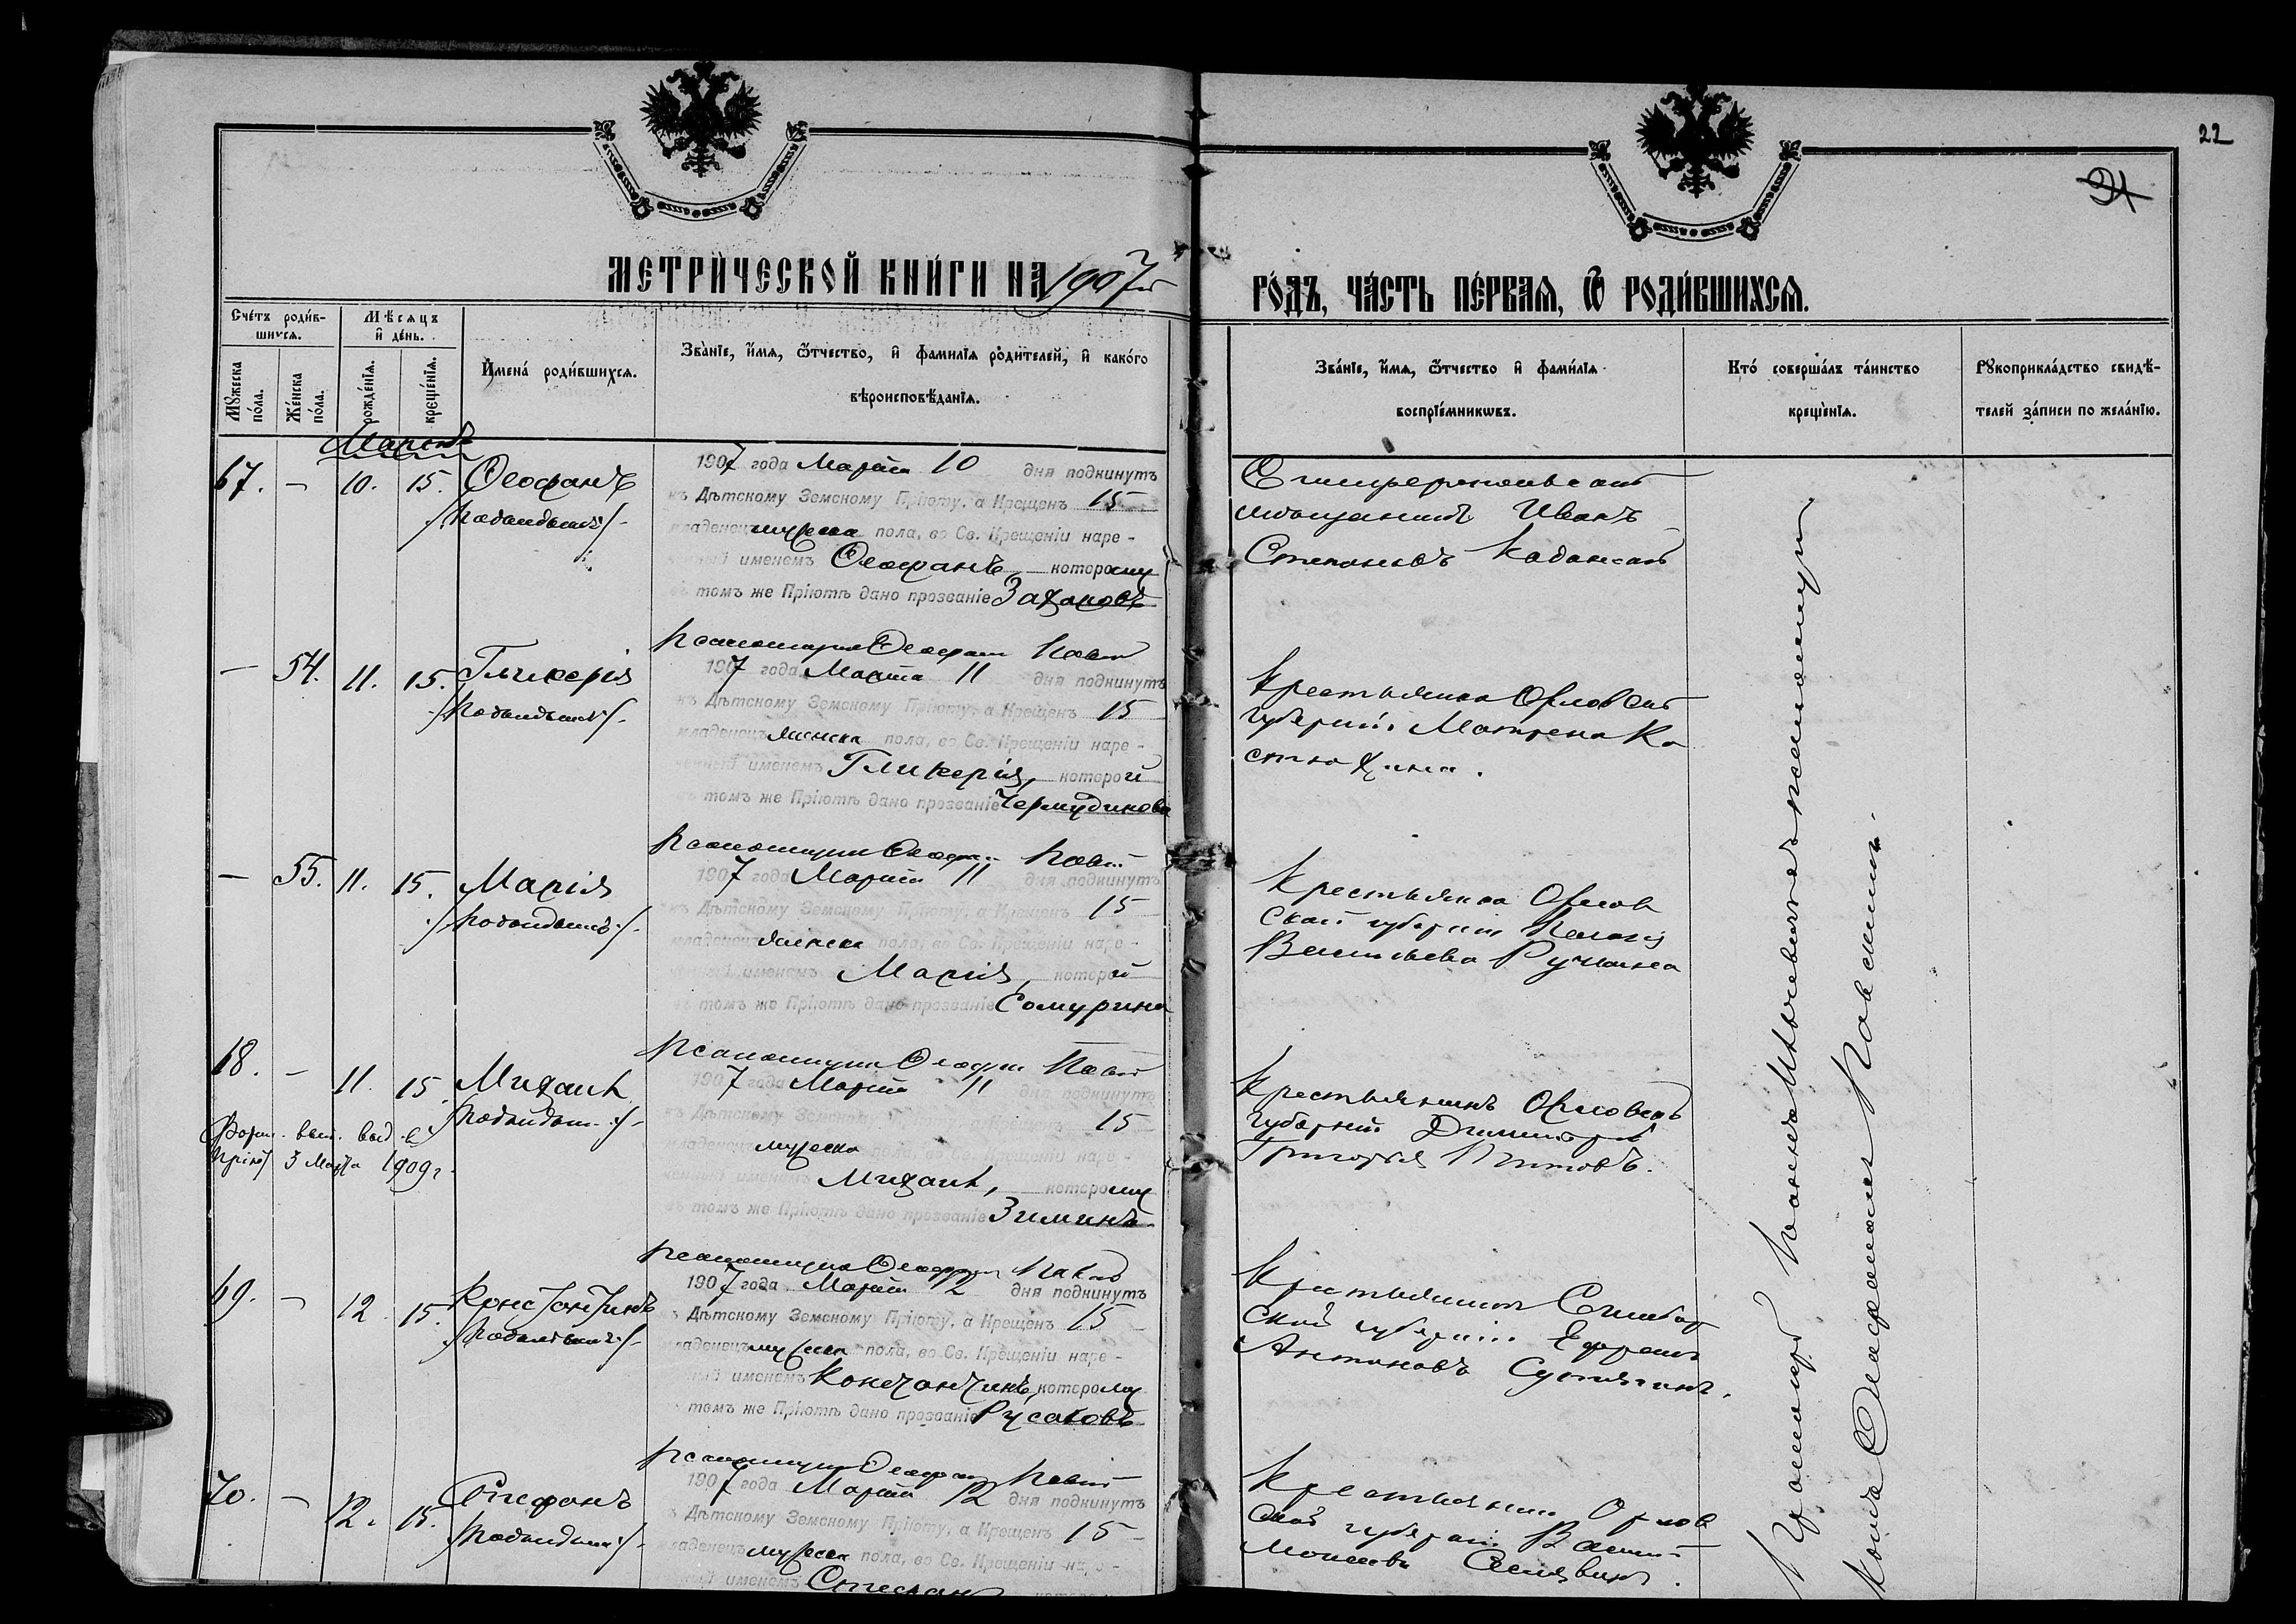 22
МЕТРИ́ЧЕСКОЙ КНИ́ГИ НА 1907й
ГО́ДЪ, ЧА́СТЬ ПЕ́РВАѦ, Ѿ РОДИ́ВШИХСѦ.
Сче́тъ роди́в-
шихсѧ.
Мѣсѧцъ
и҆ де́нь.
Мꙋжеска
по́ла.
Же́нска
по́ла.
рожде́нїѧ.
креще́нїѧ.
И҆мена́ роди́вшихсѧ.
Зва́нїе, и҆мѧ, ѻ҆́тчество, и҆ фамилїѧ роди́телей, и҆ како́го
вѣроисповѣ́данїѧ.
Зва́нїе, и҆́мѧ, ѻ҆́тчество и҆ фами́лїѧ
воспрїе́мникѡвъ.
Кто́ соверша́лъ та́инство
креще́нїѧ.
Рꙋкоприкла́дство свидѣ́-
телей за́писи по жела́нїю.
Мартъ
67. – 10. 15. Ѳеофанъ
1907 года Марта 10 дня подкинутъ
къ Дѣтскому Земскому Пріюту, а Крещенъ 15
младенецъ мужеска пола, во Св. Крещеніи наре-
ченный именемъ Ѳеофанъ, которому
въ томъ же Пріютѣ дано прозваніе Захаровъ
Симферопольскій
мѣщанинъ Иванъ
Степановъ
Псаломщикъ Ѳеофан
– 54. 11. 15. Гликерія
1907 года Марта 11 дня подкинутъ
къ Дѣтскому Земскому Пріюту, а Крещенъ 15
младенецъ женска пола, во Св. Крещеніи наре-
ченный именемъ Гликерія, которой
въ томъ же Пріютѣ дано прозваніе Чермудинова
Крестьянка Орловской
губерніи Матрена Ко
стюхина.
Псаломщикъ Ѳеофан
– 55. 11. 15. Марія
1907 года Марта 11 дня подкинутъ
къ Дѣтскому Земскому Пріюту, а Крещенъ 15
младенецъ женска пола, во Св. Крещеніи наре-
ченный именемъ Марія, которой
въ томъ же Пріютѣ дано прозваніе Сомурина
Крестьянка Орлов
ской губерніи Пелагія
Васильева
Псаломщикъ Ѳеофан
68. – 11. 15. Михаилъ
1907 года Марта 11 дня подкинутъ
къ Дѣтскому Земскому 15
младенецъ мужеска пола, во Св. Крещеніи наре-
ченный именемъ Михаилъ, которому
въ томъ же Пріютѣ дано прозваніе Зиминъ
Форм. вып. выд. въ
Пріют 3 Марта 1909 г.
Крестьянинъ Орловской
губерніи Димитрій
Григорьев Титовъ.
Псаломщикъ Ѳеофан
69. – 12. 15. Константинъ
1907 года Марта 12 дня подкинутъ
къ Дѣтскому Земскому Пріюту, а Крещенъ 15
младенецъ мужеска пола, во Св. Крещеніи наре-
ченный именемъ Константинъ, которому
въ томъ же Пріютѣ дано прозваніе Русаковъ
Крестьянинъ Симбир
ской губерніи Ефремъ
Антоновъ
Псаломщикъ Ѳеофан
70. – 12. 15. Стефанъ
1907 года Марта 12 дня подкинутъ
къ Дѣтскому Земскому Пріюту, а Крещенъ 15
младенецъ мужеска пола, во Св. Крещеніи наре-
ченный именемъ Стефан
Крестьянинъ Орлов
ской губерніи Васил
Моисеевъ
Протоіерей съ псаломщикомъ
Ѳеофаномъ